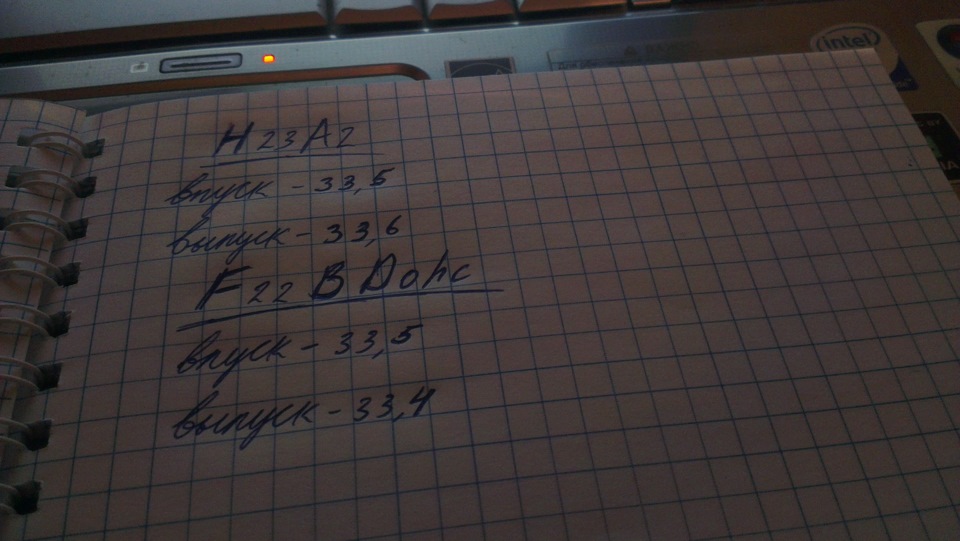 intel
H23A2
впуск - 33,5
выпуск - 33,6
F22B Dohc
впуск - 33,5
выпуск - 33,4